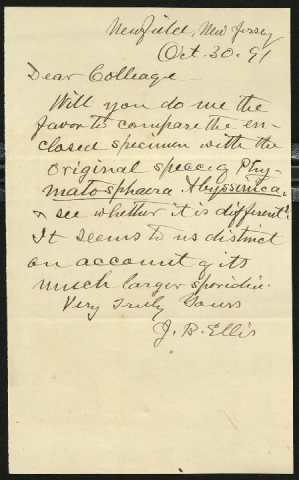 Newfield, New Jersey
Oct. 30. 91
Dear Colleage
Will you do me the
favor to compare the en-
closed specimen with the
original specc of Phy-
matosphaera Abyssinica.
& see whether it is different?
It seems to us distinct
on account of its
much larger sporidia.
Very Truly Yours
J. B. Ellis